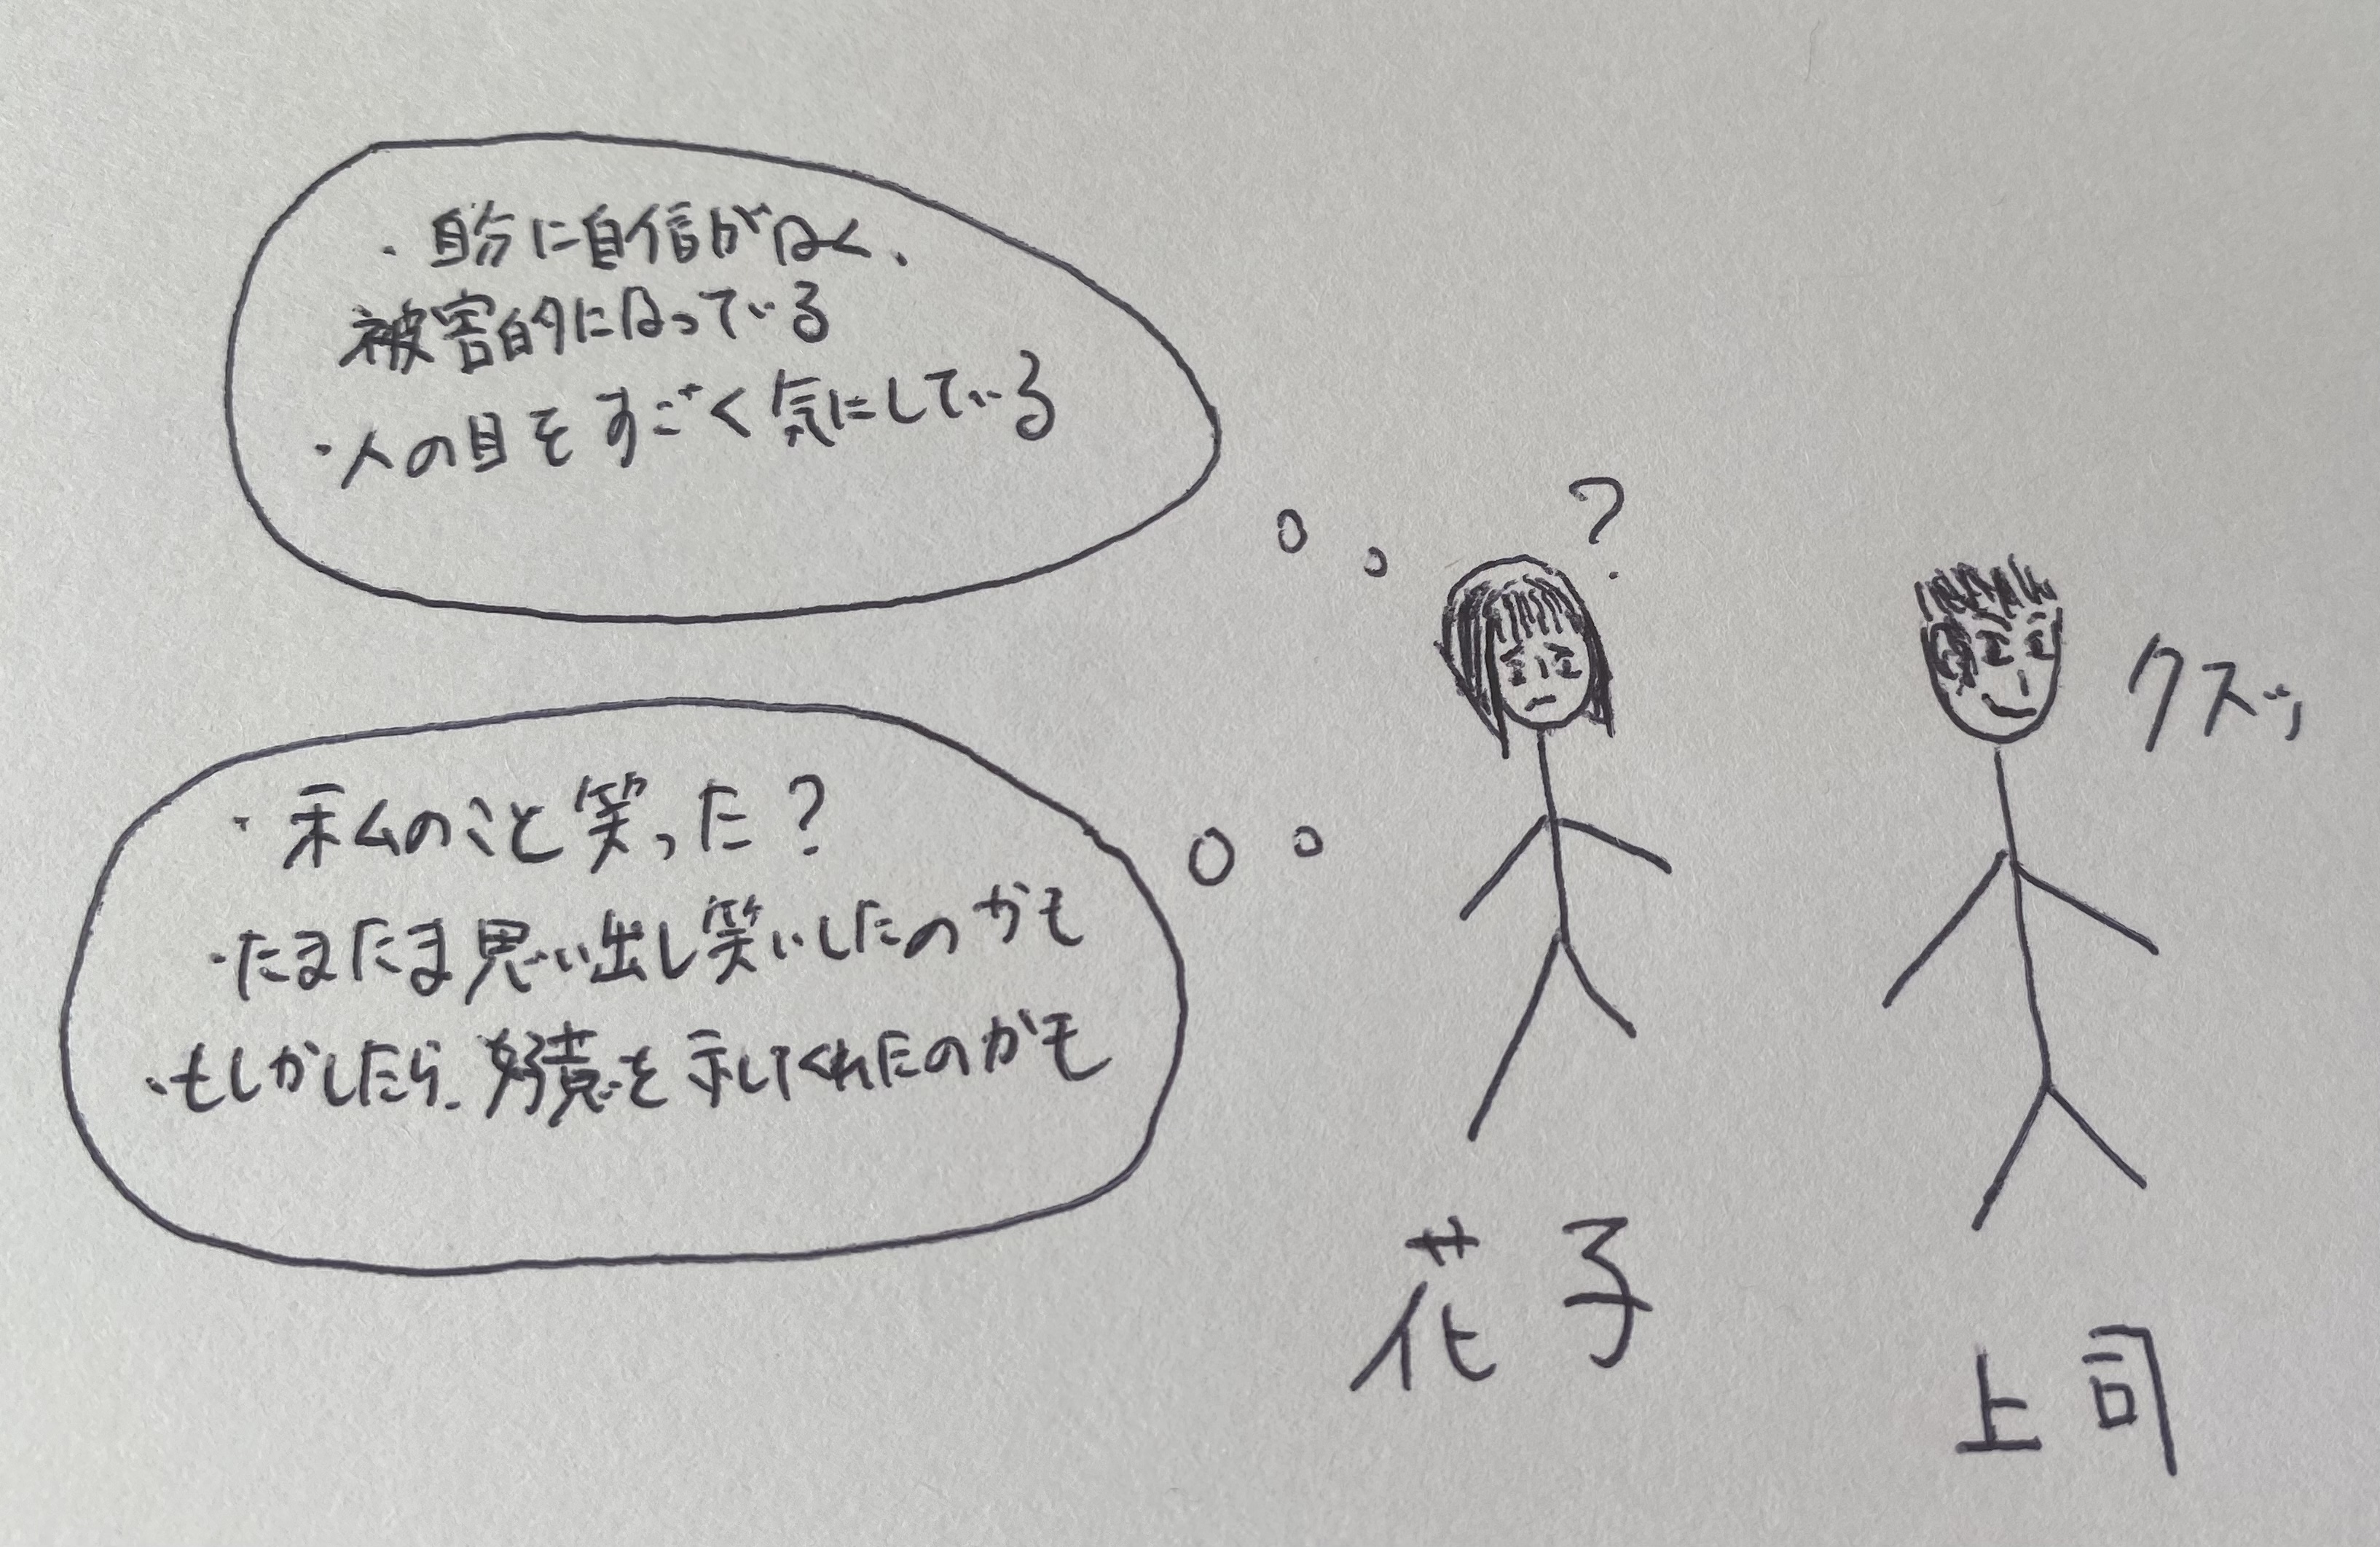 ・自分に自信がなく、
被害的になっている
・人の目をすごく気にしている
?
クスッ
・私のこと笑った?
・たまたま思い出し笑いしたのかも
・もしかしたら、好意を示してくれたのかも
花子
上司